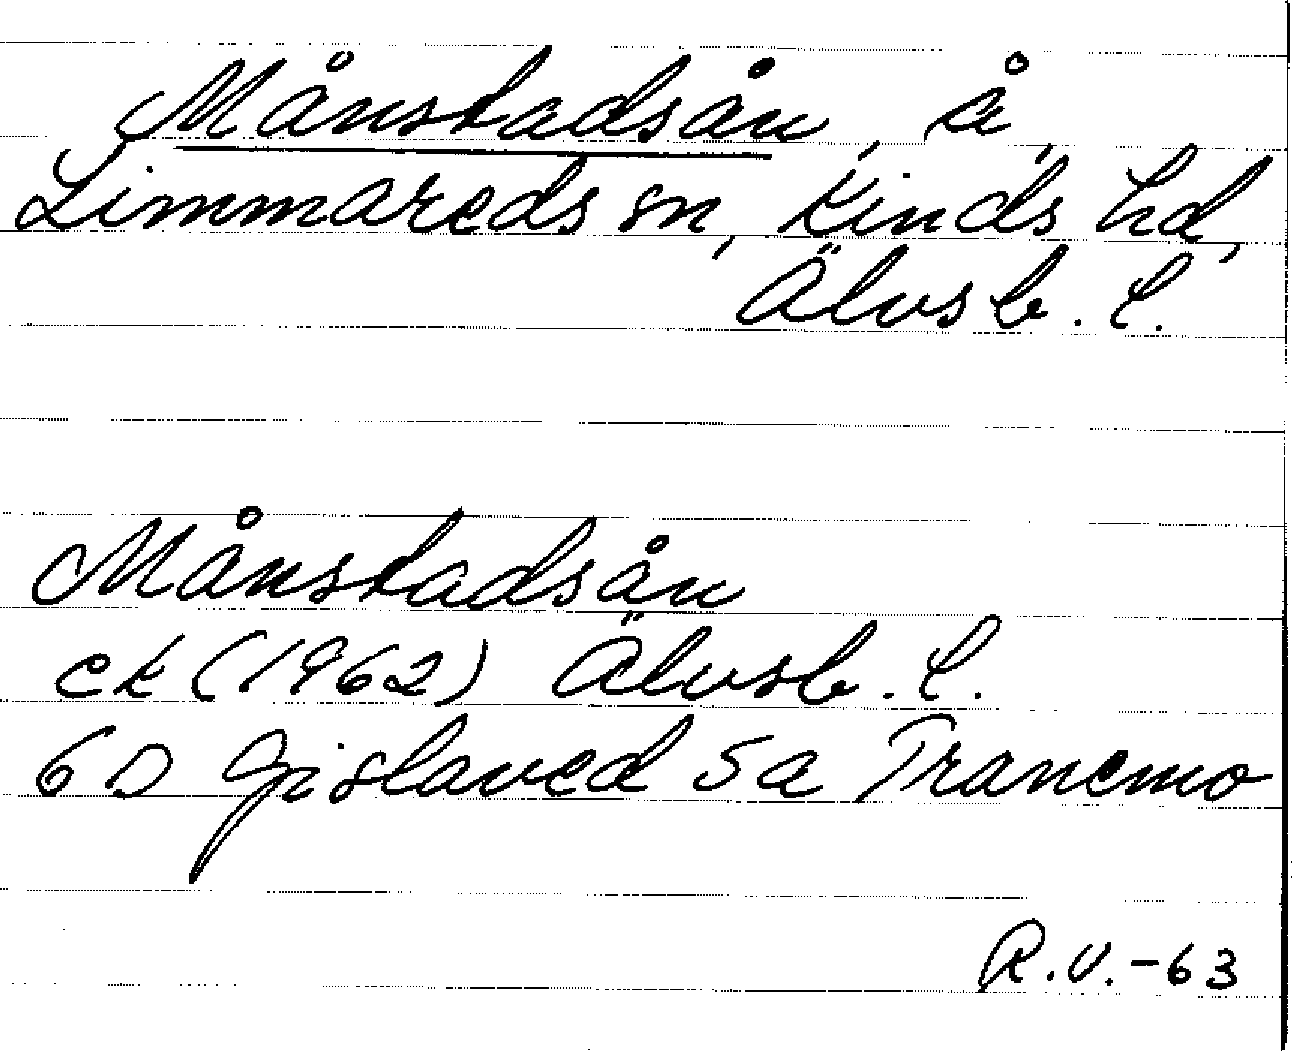 Månstadsån, å,
Limmareds sn, Kinds hd,
Älvsb. l.
Månstadsån
ek (1962) Älvsb. l.
6D Gislaved 5a Tranemo
R.V.-63